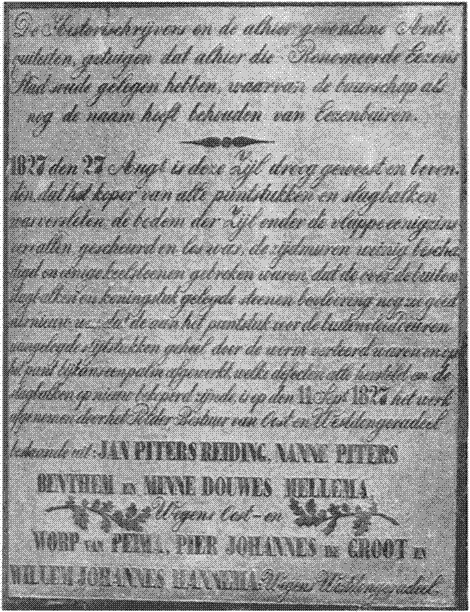 De Historieschrijvers en de alhier gevondene Anti-
cuiteiten, getuigen dat alhier die Renomeerde Eezens
Stad soude gelegen hebben, waarvan de buurschap als
nog de naam heeft behouden van Eezenbuiren.
1827 den 27 Augt is deze Zijl droog geweest en beven-
den, dat het koper van alle puntstukken en slagbalken
was versleten, de bodem der Zijl onder de vlappe eenigzins
vervallen gescheurd en los was, de zijdmuren weinig bescha
digd en eenige keelsteenen gebroken waren, dat de over de buiten
slagbalken en koningstuk gelegde steenen bevloering nog zo goed
als nieuw was, dat de aan het puntstuk voor de buitenvloeddeuren
aangelegde stijlstukken geheel door de worm verteerd waren en op
het punt bijna een palm afgewerkt, welke defecten alle hersteld en de
slagbalken op nieuw bekoperd zijnde, is op den 11 Sept 1827 het werk
afgenomen door het Polder Bestuur van Oost en Westdongeradeel
bestaande uit: JAN PITERS REIDING, NANNE PITERS
BENTHEM EN MINNE DOUWES HELLEMA,
Wegens Oost-en
WORP VAN PEIMA, PIER JOHANNES DE GROOT EN
WILLEM JOHANNES HANNEMA. Wegens Westdongeradeel